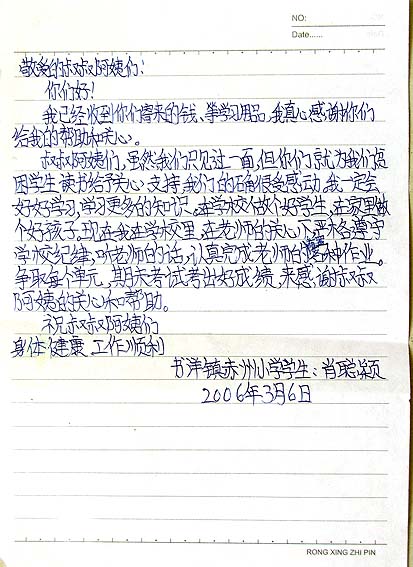 NO:
Date......
敬爱的叔叔阿姨们：
你们好！
我已经收到你们寄来的钱、学习用品，我真心感谢你们
给我的帮助和关心。
叔叔阿姨们，虽然我们只见过一面，但你们就为我们贫
困学生读书给予关心、支持，我们的确很受感动，我一定会
好好学习，学习更多的知识。在学校做个好学生，在家里做
个好孩子。现在我在学校里，在老师的关心下，严格遵守
学校纪律，听老师的话，认真完成老师的各种作业。
争取每个单元，期末考试考出好成绩，来感谢叔叔
阿姨的关心和帮助。
祝叔叔阿姨们
身体健康 工作顺利
书洋镇赤州小学学生：肖聪颖
2006年3月6日
RONG XING ZHI PIN